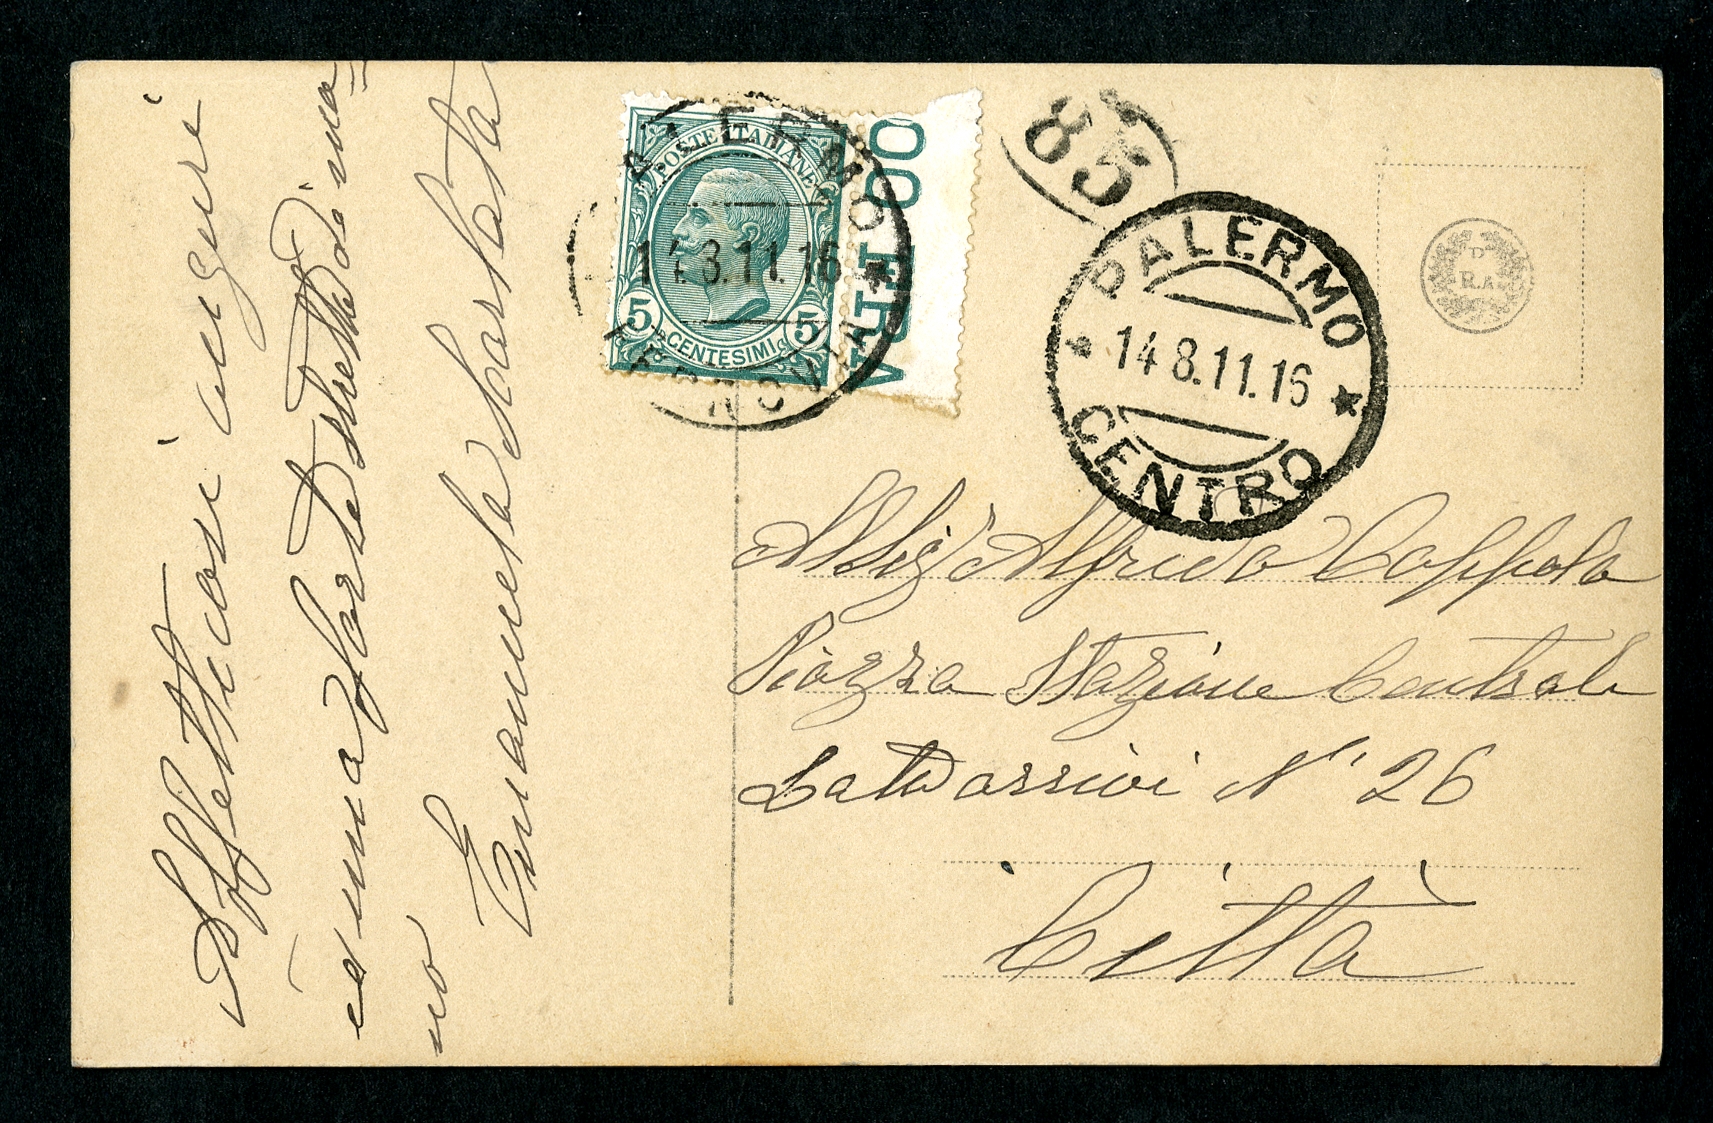 Affettuosi auguri
ed una forte stretta di ma=
no
Emanuele
POSTE ITALIANE
5 CENTESIMI 5
PALERMO
14 8.11.16
FERROVIA
VALE
85
PALERMO
14 8.11.16
CENTRO
D
R.A
All Sig' Alfredo Coppola
Piazza Stazione Centrale
N' 26
Città